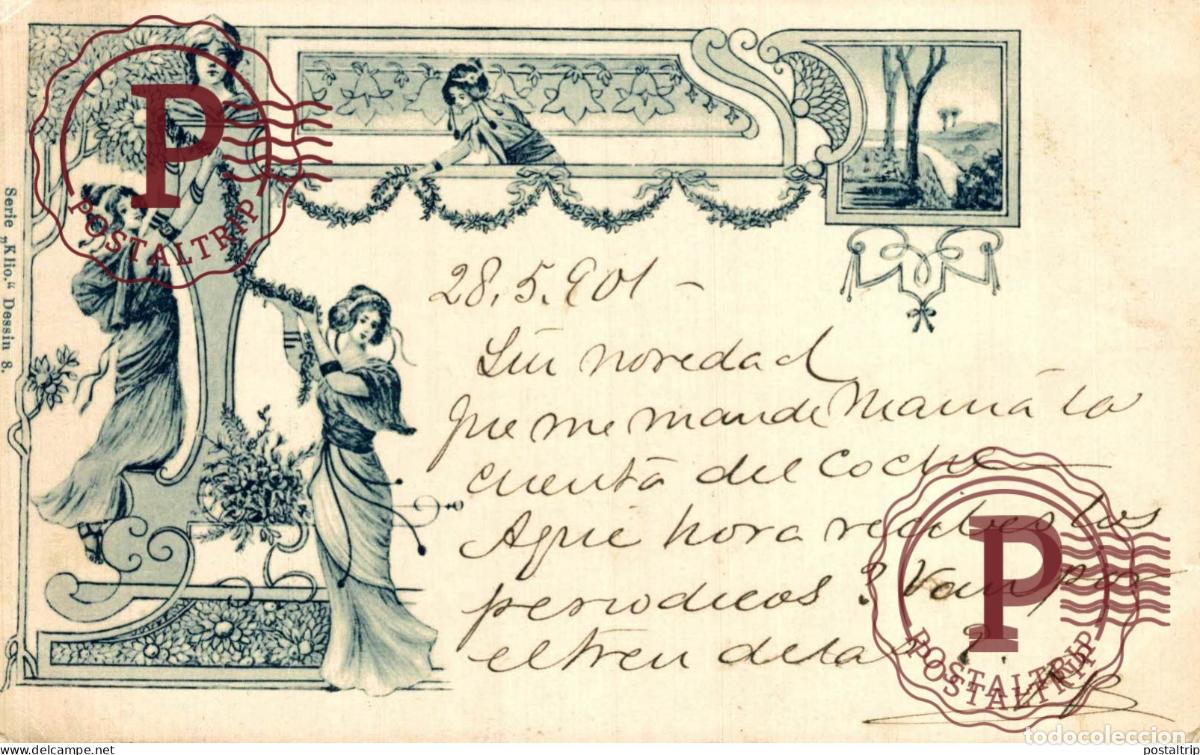 Serie „Klio.“ Dessin 8.
28.5.901 –
Sin novedad
que me mande Mamá la
cuenta del coche
Aqué hora recibes los
periodicos? Van por
el tren de las
P
POSTALTRIP
P
POSTALTRIP
todocoleccion
www.delcampe.net
postaltrip